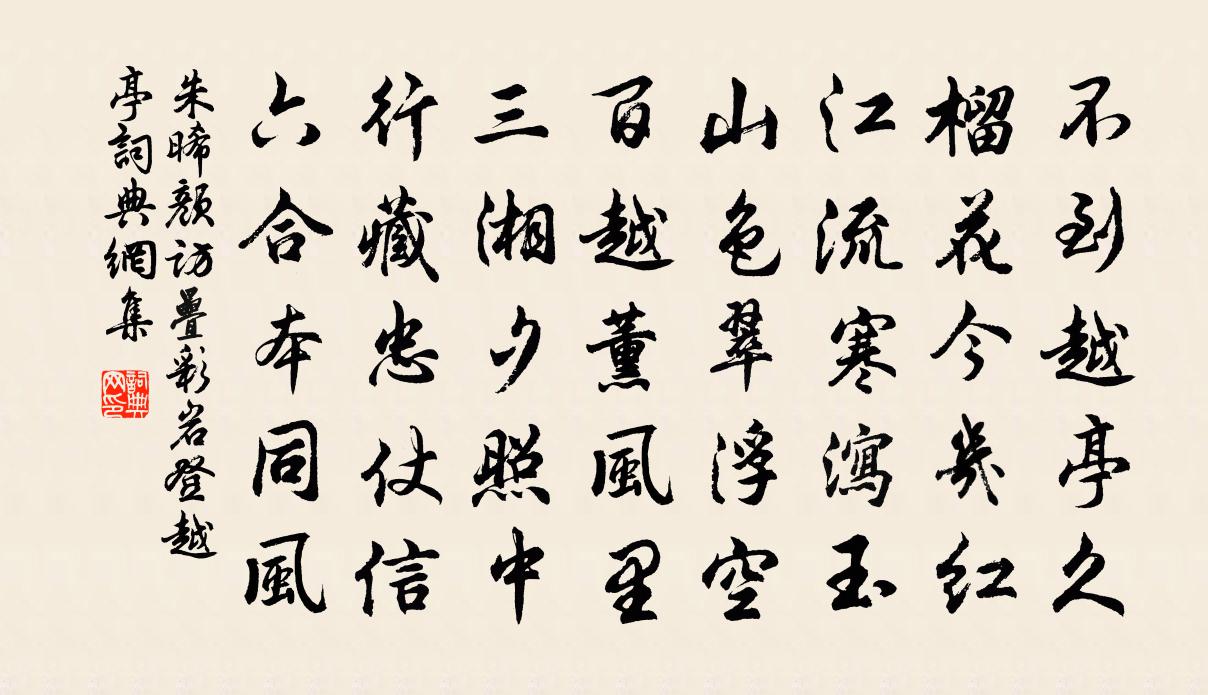 不到越亭久
榴花今幾紅
江流寒瀉玉
山色翠浮空
百越薰風里
三湘夕照中
行藏忠仗信
六合本同風
朱晞顏訪疊彩岩登越
亭詞典網集
詞典
网印